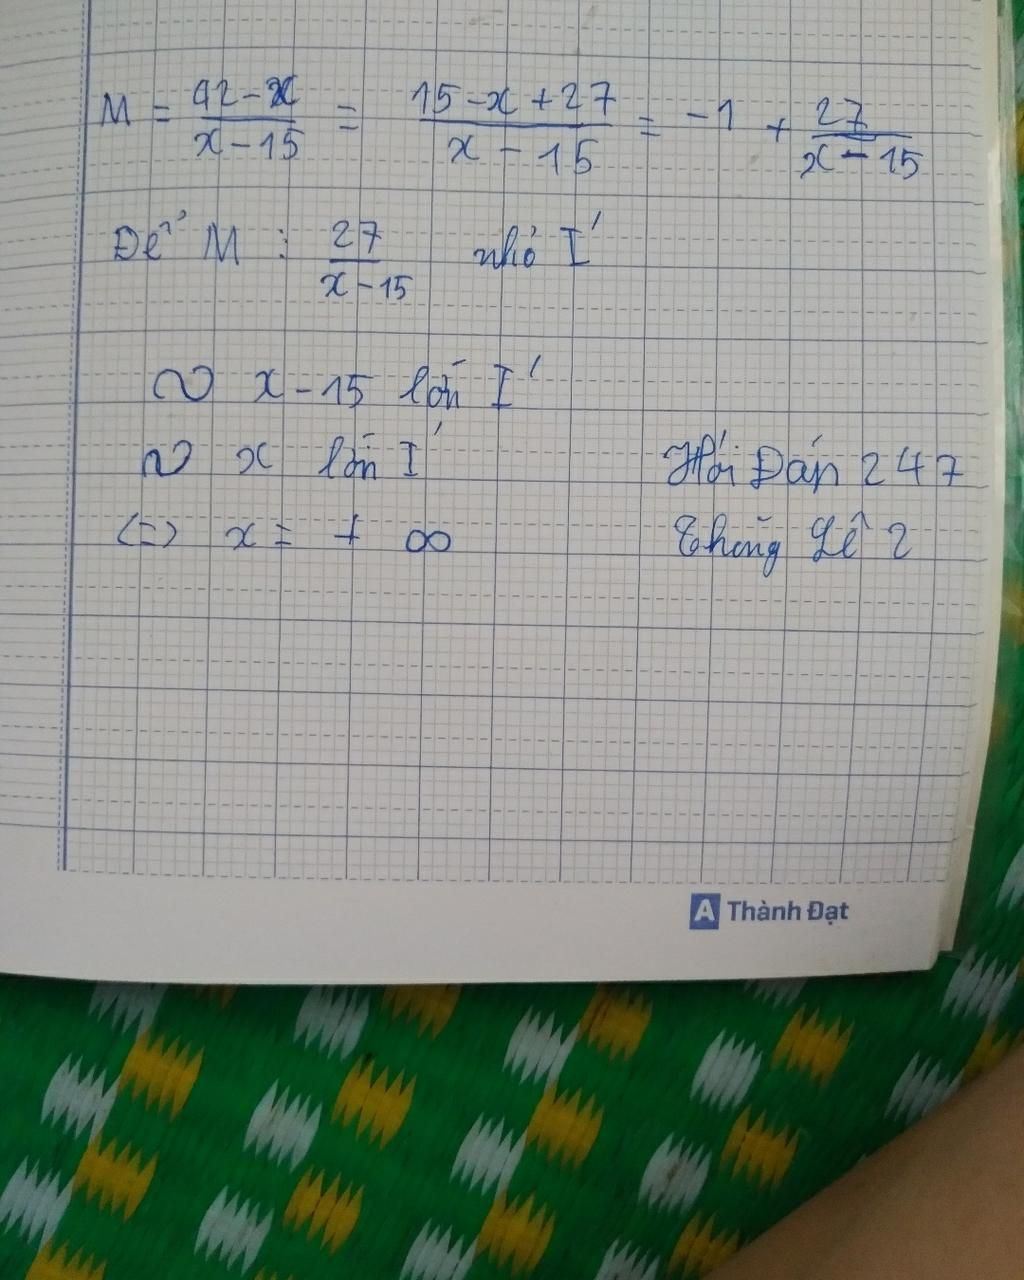 M = 42-x / x-15 = 15-x+27 / x-15 = -1 + 27 / x-15
Để M : 27 / x-15 nhỏ I'
~ x-15 lớn I'
~ x lớn I'
Hỏi Đáp 247
(=) x = + ∞
Thùng Lê 2
A Thành Đạt